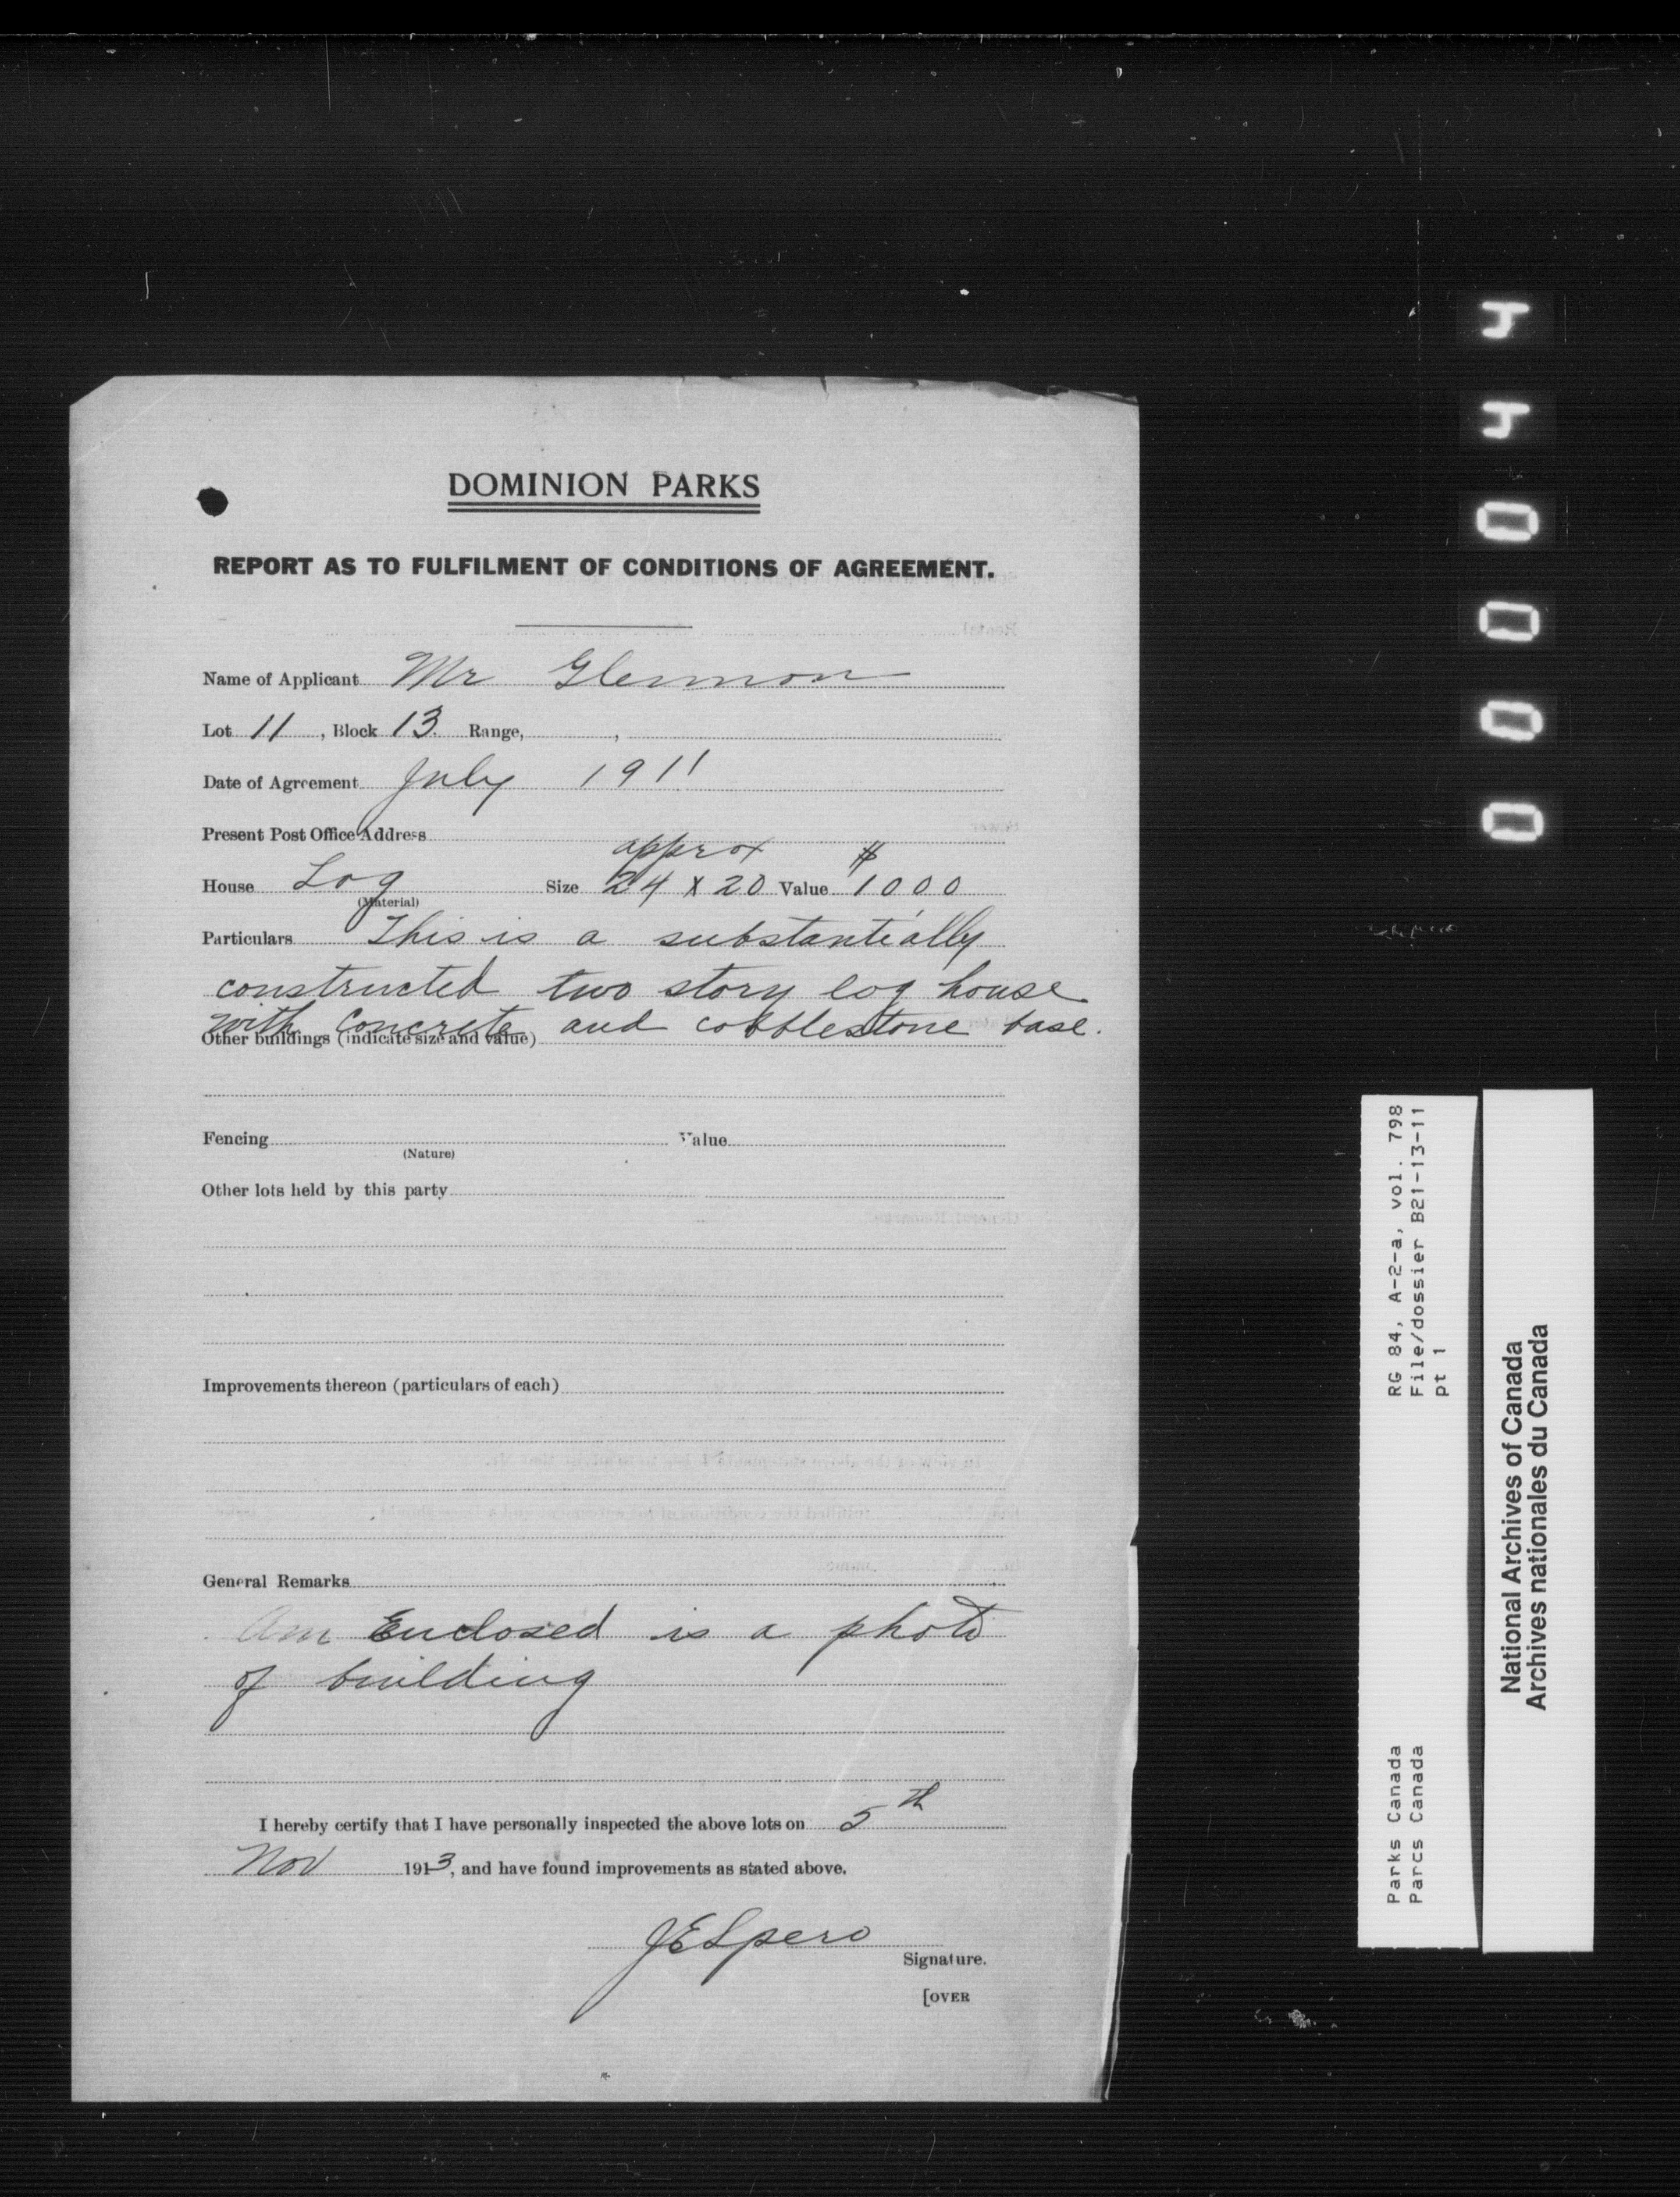 DOMINION PARKS
REPORT AS TO FULFILMENT OF CONDITIONS OF AGREEMENT.
Name of Applicant Mr Glennon
Lot 11, Block 13. Range, ,
Date of Agreement July 1911
Present Post Office Address
approx $
House Log Size 24 x 20 Value 1000
(Material)
Particulars This is a substantially
constructed two story log house
with concrete and cobblestone base.
Other buildings (indicate size and value)
Fencing Value
(Nature)
Other lots held by this party
Improvements thereon (particulars of each)
General Remarks
Am Enclosed is a photo
of building
I hereby certify that I have personally inspected the above lots on 5th
Nov 1913, and have found improvements as stated above.
JESpero
Signature.
[OVER
RG 84, A-2-a, vol. 798
File/dossier B21-13-11
pt 1
Parks Canada
Parcs Canada
National Archives of Canada
Archives nationales du Canada